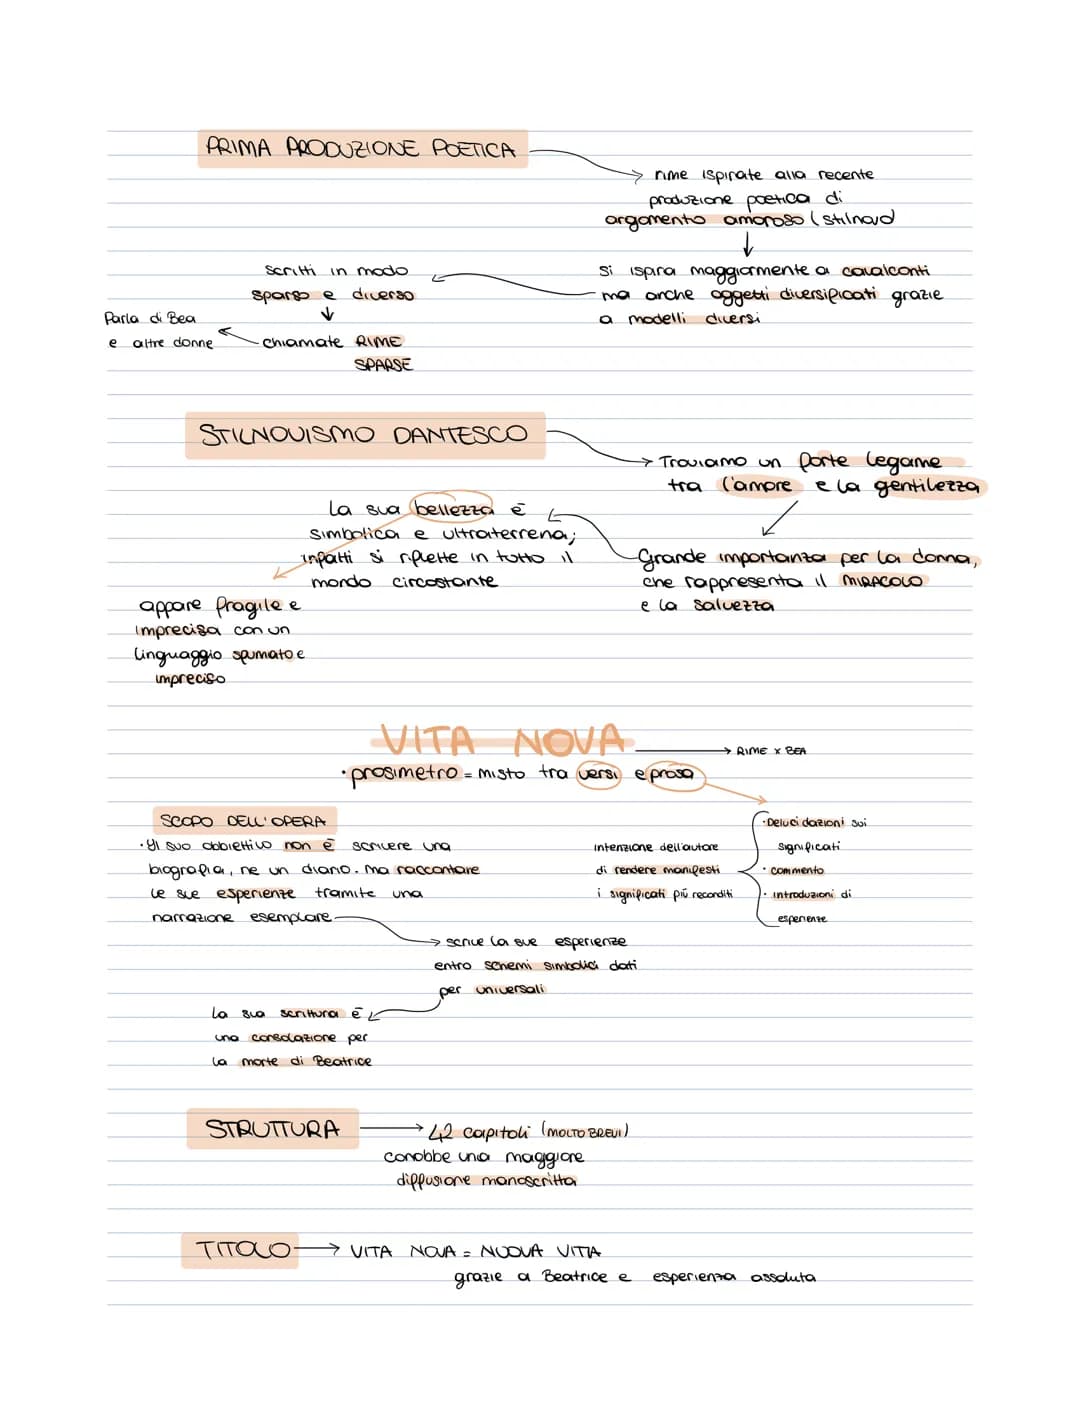 PRIMA PRODUZIONE POETICA
rime ispirate alla recente
produzione poetica di
argomento amoroso (stilnovo)
si ispira maggiormente a cavalcanti
ma anche oggetti diversificati grazie
a modelli diversi
scritti in modo
sparso e diverso
chiamate RIME
SPARSE
Parla di Bea
e altre donne
STILNOVISMO DANTESCO
Troviamo un forte legame
tra l'amore e la gentilezza
Grande importanza per la donna,
che rappresenta il MIRACOLO
e la salvezza
La sua bellezza è
simbolica e ultraterrena;
infatti si riflette in tutto il
mondo circostante
appare fragile e
imprecisa con un
linguaggio sfumato e
impreciso
VITA NOVA
RIME x BEA
• prosimetro = misto tra versi e prosa
SCOPO DELL'OPERA
• Il suo obbiettivo non è scrivere una
biografia, ne un diario. Ma raccontare
le sue esperienze tramite una
narrazione esemplare
• Delucidazioni sui
significati
• commento
• introduzioni di
esperienze
intenzione dell'autore
di rendere manifesti
i significati più reconditi
scrive la sue esperienze
entro schemi simbolici dati
per universali
La sua scrittura è
una consolazione per
la morte di Beatrice
STRUTTURA
42 capitoli (MOLTO BREVI)
conobbe una maggiore
diffusione manoscritta
TITOLO
VITA NOVA = NUOVA VITA
grazie a Beatrice e esperienza assoluta